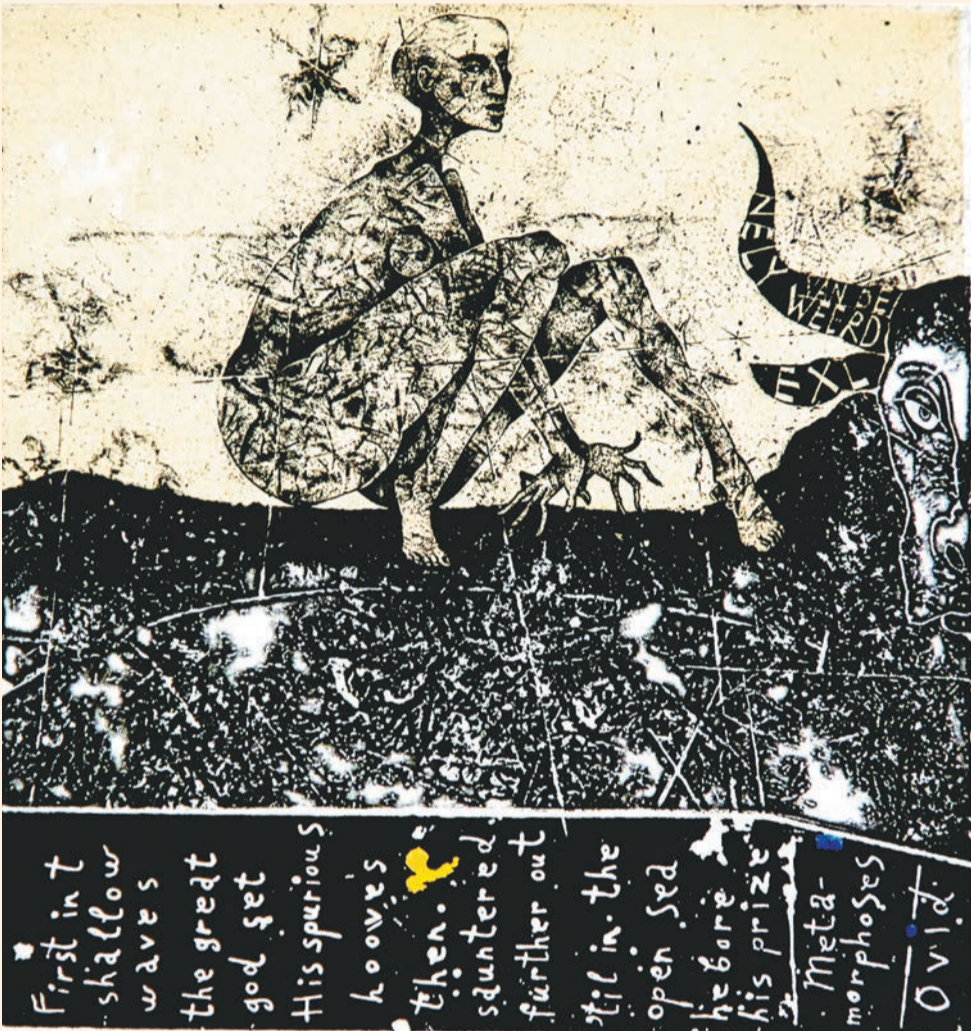 NELY
VAN DE
WEERD
EXL
First in t
shallow
waves
the great
god set
His spurious
hooves
then
sauntered
further out
'til in the
open sea
he bore
his prize
Meta-
morphoses
Ovid.